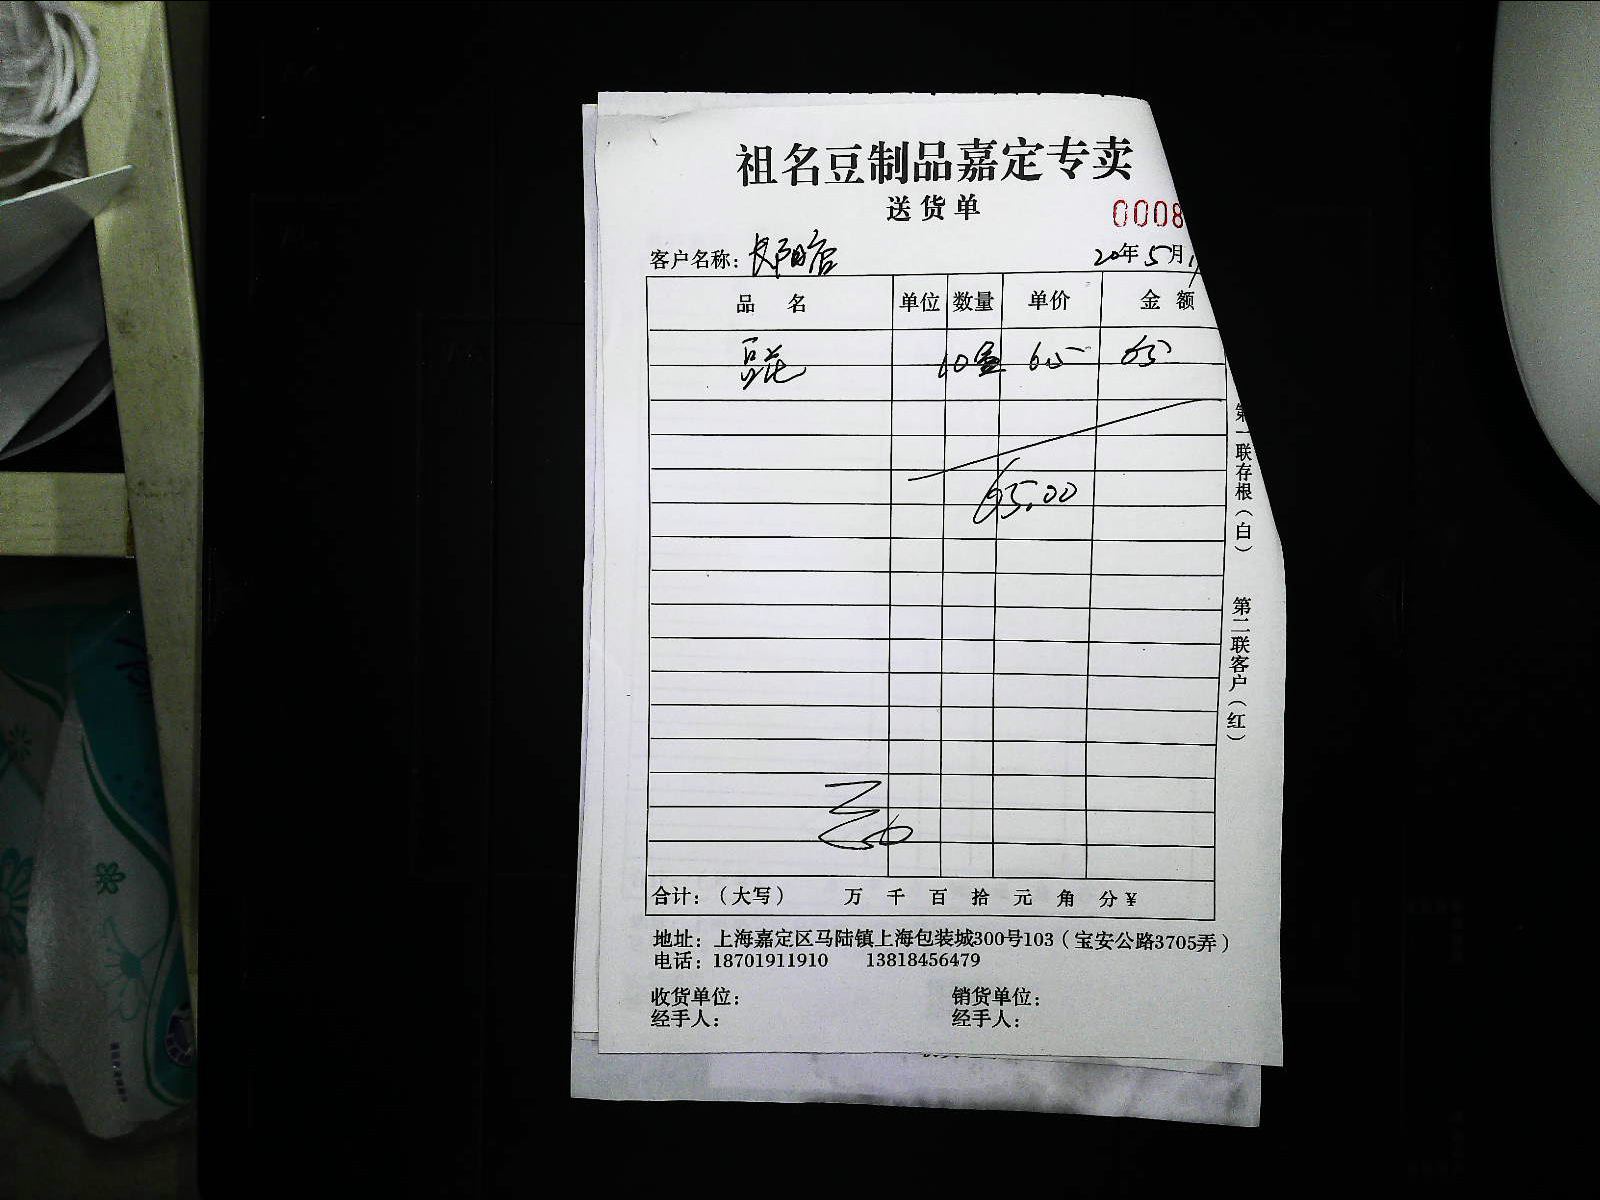 祖名豆制品嘉定专卖
送货单
0008
客户名称：长阳店 20年5月1
品 名 单位 数量 单价 金 额
豆花 10盒 6.5 65
65.00
合计：（大写） 万 千 百 拾 元 角 分 ¥
地址：上海嘉定区马陆镇上海包装城300号103（宝安公路3705弄）
电话：18701911910 13818456479
收货单位： 销货单位：
经手人： 经手人：
第一联存根（白） 第二联客户（红）